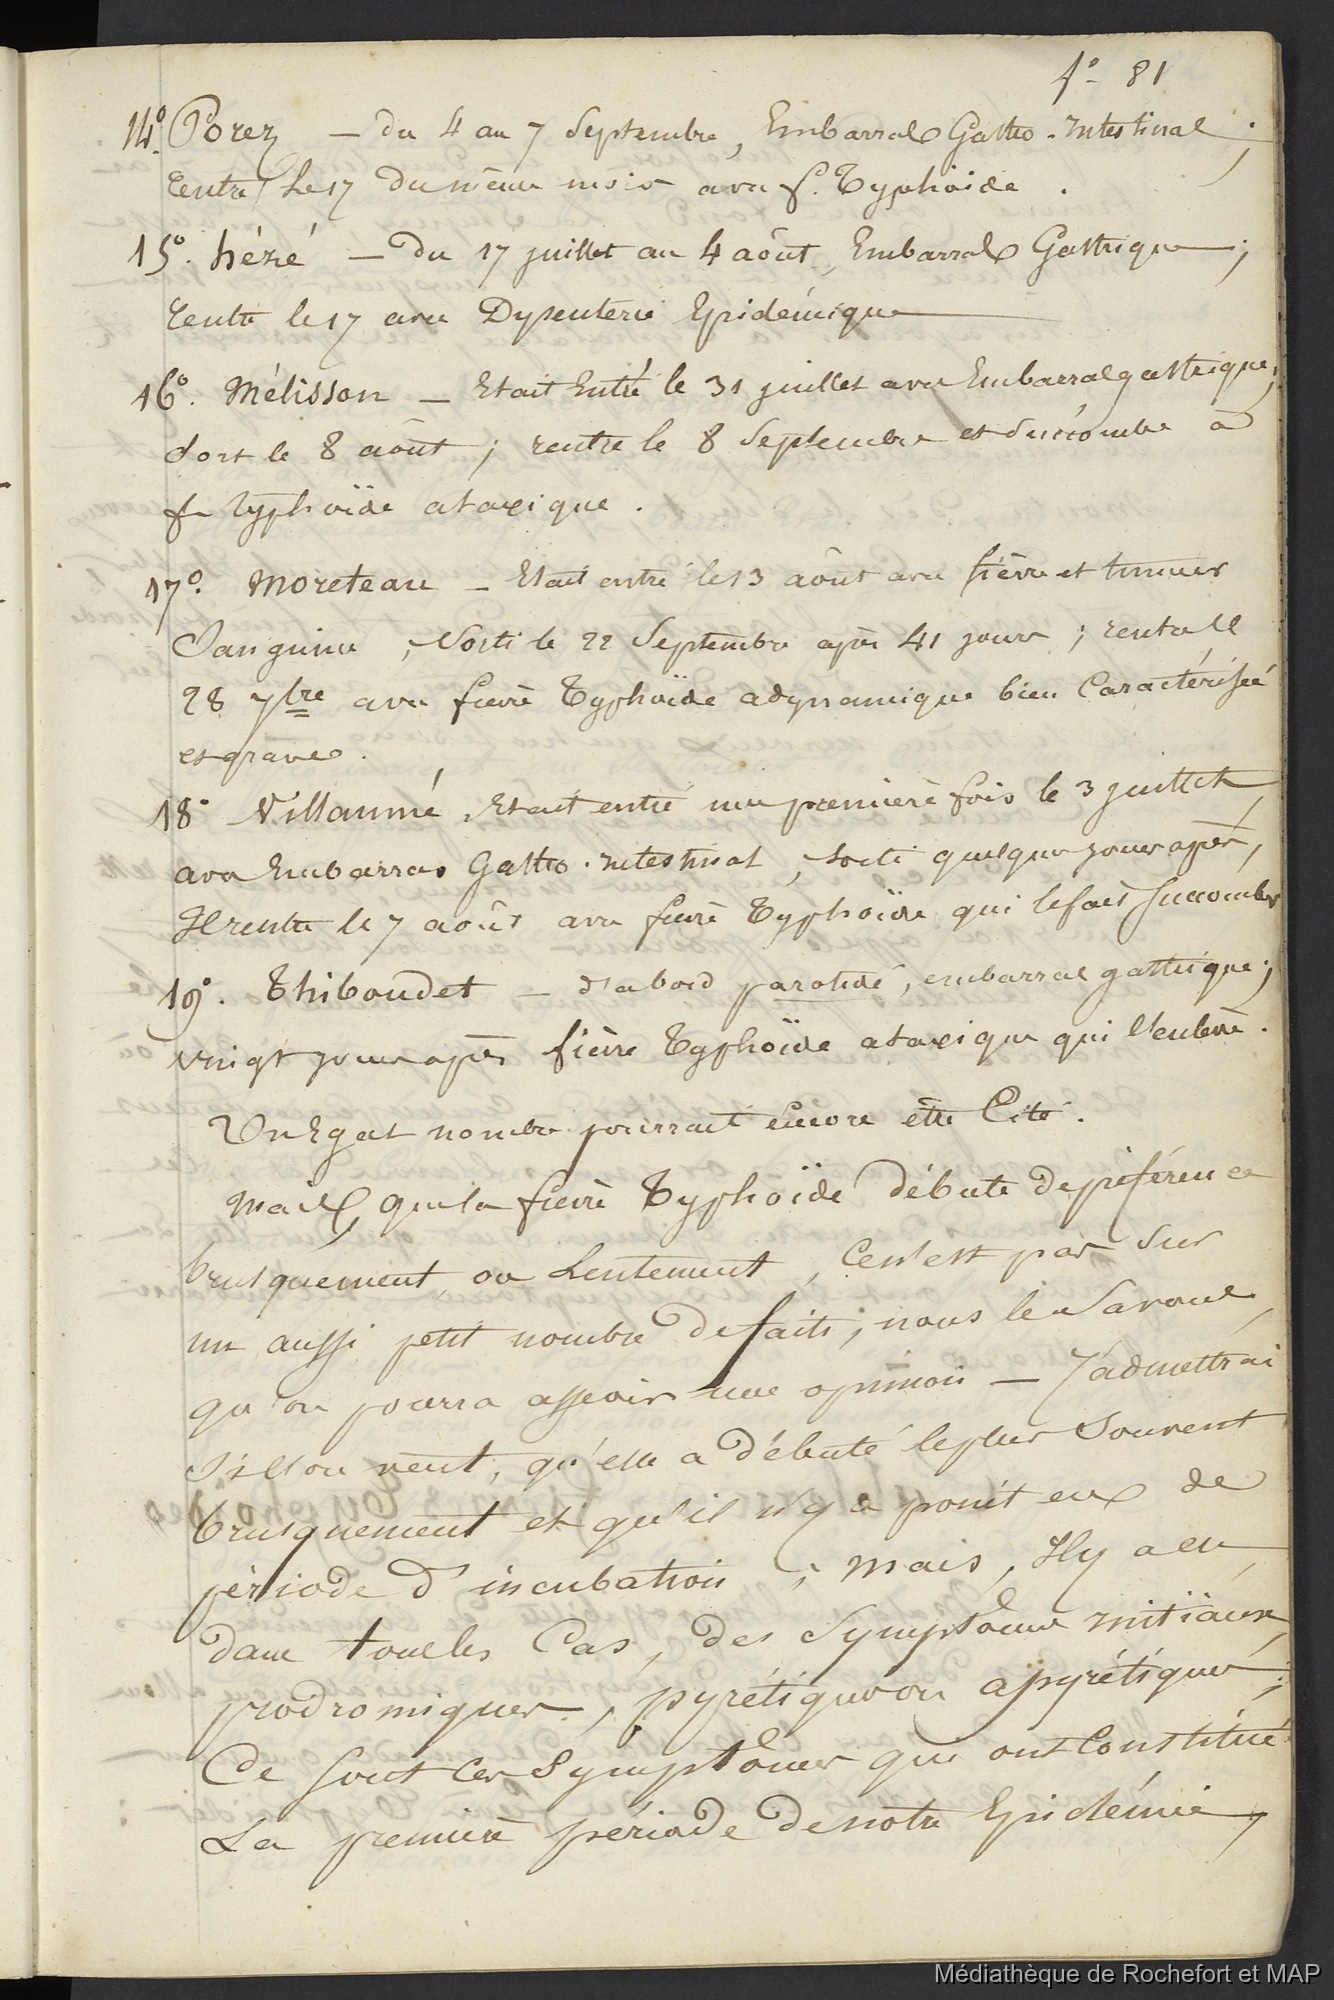 f° 81
14° Porez — du 4 au 7 Septembre, Embarras Gastro-Intestinal;
rentre le 17 du même mois avec f. Typhoïde.
15°. hézé — du 17 juillet au 4 août, Embarras Gastrique;
rentre le 17 avec Dysenterie Epidémique
16°. Mélisson — Etait Entré le 31 juillet avec Embarras gastrique;
sort le 8 août; rentre le 8 Septembre et succombe à
fe Typhoïde ataxique.
17°. Moreteau — Etait entré le 13 août avec fièvre et tumeur
Sanguine, Sorti le 22 Septembre après 41 jours; rentra le
28 7bre avec fièvre Typhoïde adynamique bien Caractérisée
et grave.
18° Villaumé, Etait entré une première fois le 3 juillet
avec Embarras Gastro-intestinal, sorti quelques jours après,
Il rentre le 7 août avec fièvre Typhoïde qui le fait succomber
19°. Thiboudet — d'abord parotide, embarras gastrique;
vingt jours après fièvre Typhoïde ataxique qui l'enlève.
Un Egal nombre pourrait encore être Cité.
Mais, que la fièvre Typhoïde débute de préférence
brusquement, ou Lentement, Ce n'est pas sur
un aussi petit nombre de faits, nous le Savons,
qu'on pourra asseoir une opinion — J'admettrai
Si l'on veut, qu'elle a débuté le plus Souvent
brusquement et qu'il n'y a point eu de
période d'incubation; Mais, Il y a eu,
dans tous les Cas, des Symptômes initiaux,
prodromiques, pyrétiques ou apyrétiques;
Ce sont ces Symptômes qui ont Constitué
La première période de notre Epidémie,
Médiathèque de Rochefort et MAP